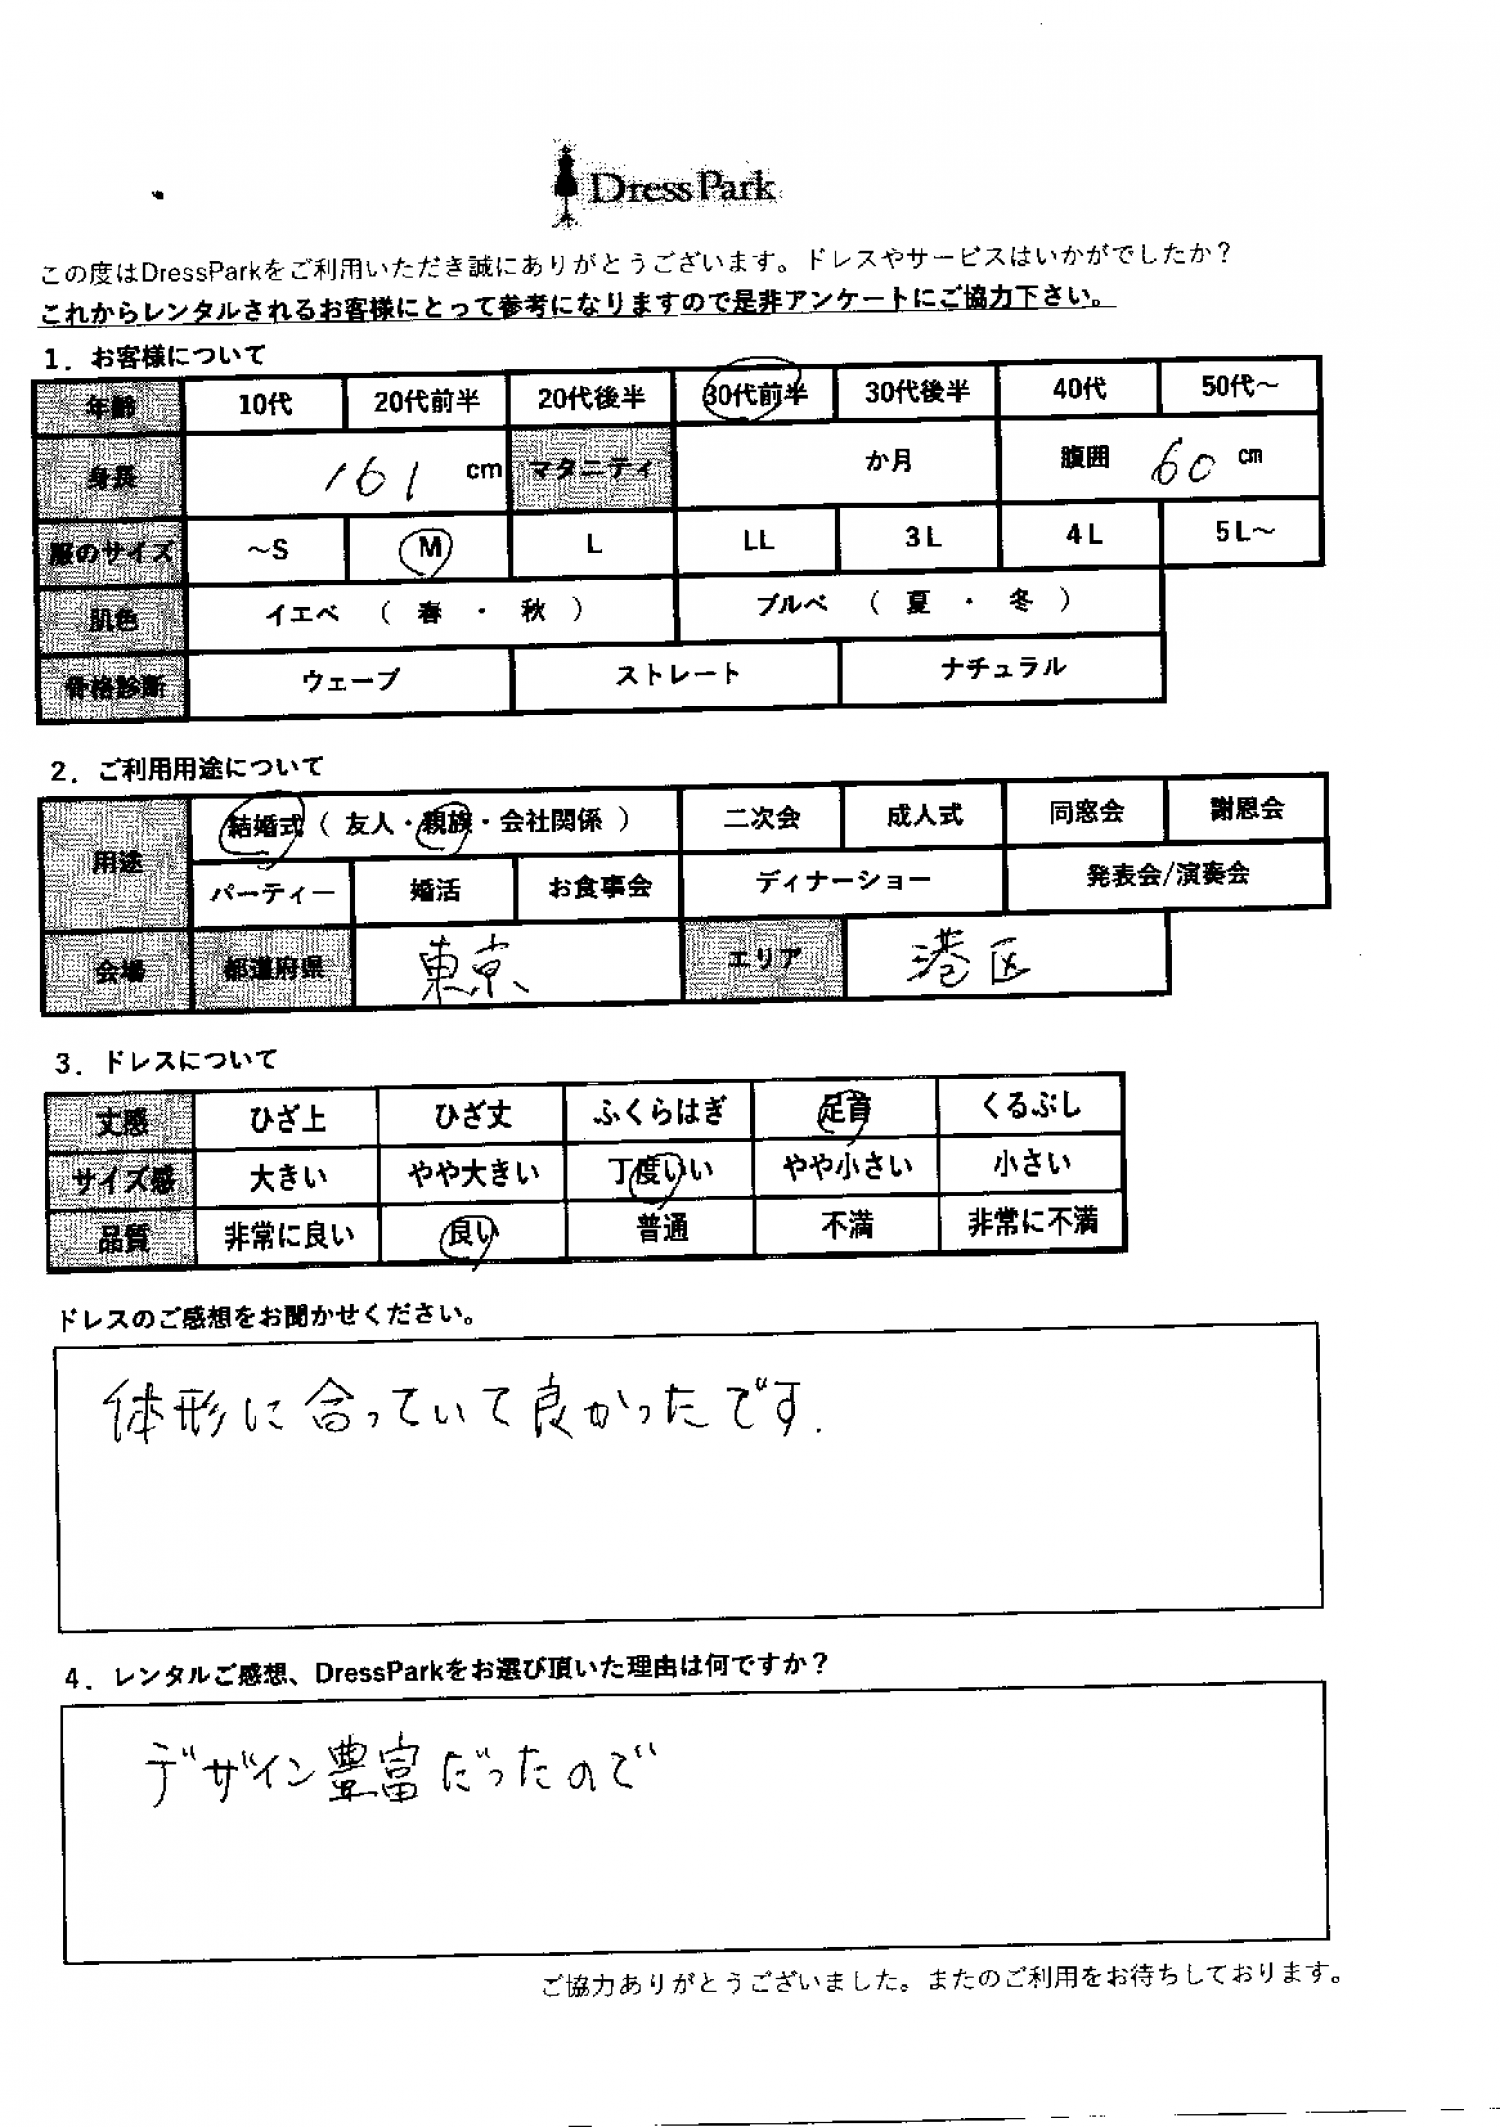 DressPark
この度はDressParkをご利用いただき誠にありがとうございます。ドレスやサービスはいかがでしたか？
これからレンタルされるお客様にとって参考になりますので是非アンケートにご協力下さい。
1．お客様について
年齢 10代 20代前半 20代後半 30代前半 30代後半 40代 50代～
身長 161 cm マタニティ か月 腹囲 60 cm
服のサイズ ～S M L LL 3L 4L 5L～
肌色 イエベ （ 春 ・ 秋 ） ブルベ （ 夏 ・ 冬 ）
骨格診断 ウェーブ ストレート ナチュラル
2．ご利用用途について
用途 結婚式（ 友人・親族・会社関係 ） 二次会 成人式 同窓会 謝恩会
パーティー 婚活 お食事会 ディナーショー 発表会/演奏会
会場 都道府県 東京 エリア 港区
3．ドレスについて
丈感 ひざ上 ひざ丈 ふくらはぎ 足首 くるぶし
サイズ感 大きい やや大きい 丁度いい やや小さい 小さい
品質 非常に良い 良い 普通 不満 非常に不満
ドレスのご感想をお聞かせください。
体形に合っていて良かったです.
4．レンタルご感想、DressParkをお選び頂いた理由は何ですか？
デザイン豊富だったので
ご協力ありがとうございました。またのご利用をお待ちしております。